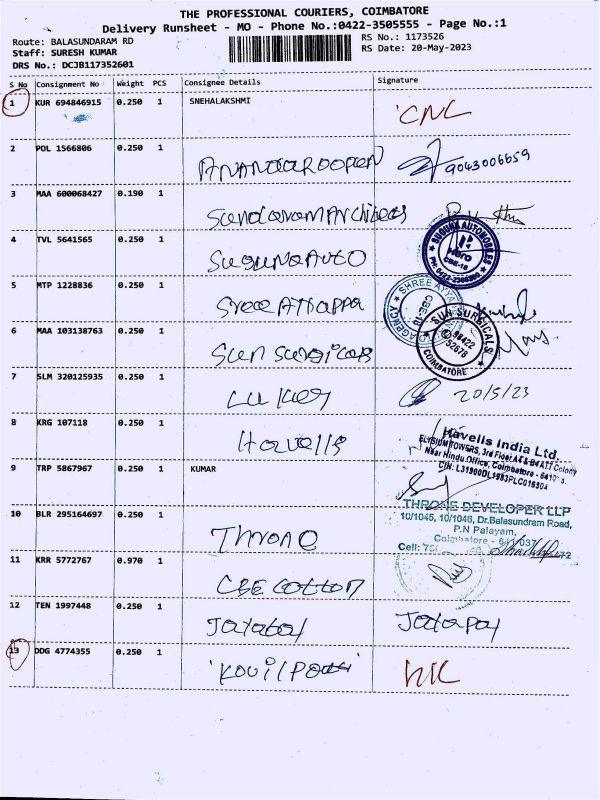 THE PROFESSIONAL COURIERS, COIMBATORE
Delivery Runsheet - MO - Phone No.:0422-3505555 - Page No.:1
Route: BALASUNDARAM RD
RS No.: 1173526
Staff: SURESH KUMAR
RS Date: 20-May-2023
DRS No.: DCJB117352601
S No Consignment No Weight PCS Consignee Details Signature
1 KUR 694846915 0.250 1 SNEHALAKSHMI CNL
2 POL 1566806 0.250 1 ANANDAROOPEN 9043006659
3 MAA 600068427 0.190 1 Sundaram Architects
4 TVL 5641565 0.250 1 SUGUNA AUTO
SUGUNA AUTOMOBILES
Hero
CBE-18
5 MTP 1228836 0.250 1 Sree Ayyappa
SHREE AYYA
AGENCY
CBE-18
6 MAA 103138763 0.250 1 Sun Surgicals
SUN SURGICALS
98422
52678
COIMBATORE
7 SLM 320125935 0.250 1 20/5/23
8 KRG 107118 0.250 1 Havells
Havells India Ltd.
ELYSIUM TOWERS, 3rd Floor, ATT Colony
Near Hindu Office, Coimbatore - 6410
CIN: L31900DL1983PLC016304
9 TRP 5867967 0.250 1 KUMAR
10 BLR 295164697 0.250 1 Throne
THRONE DEVELOPER LLP
10/1045, 10/1046, Dr.Balasundram Road,
P.N Palayam,
Coimbatore - 641037
Cell:
11 KRR 5772767 0.970 1 CBE Cotton
12 TEN 1997448 0.250 1 Jayabal
13 DDG 4774355 0.250 1 'Kovilpatti'